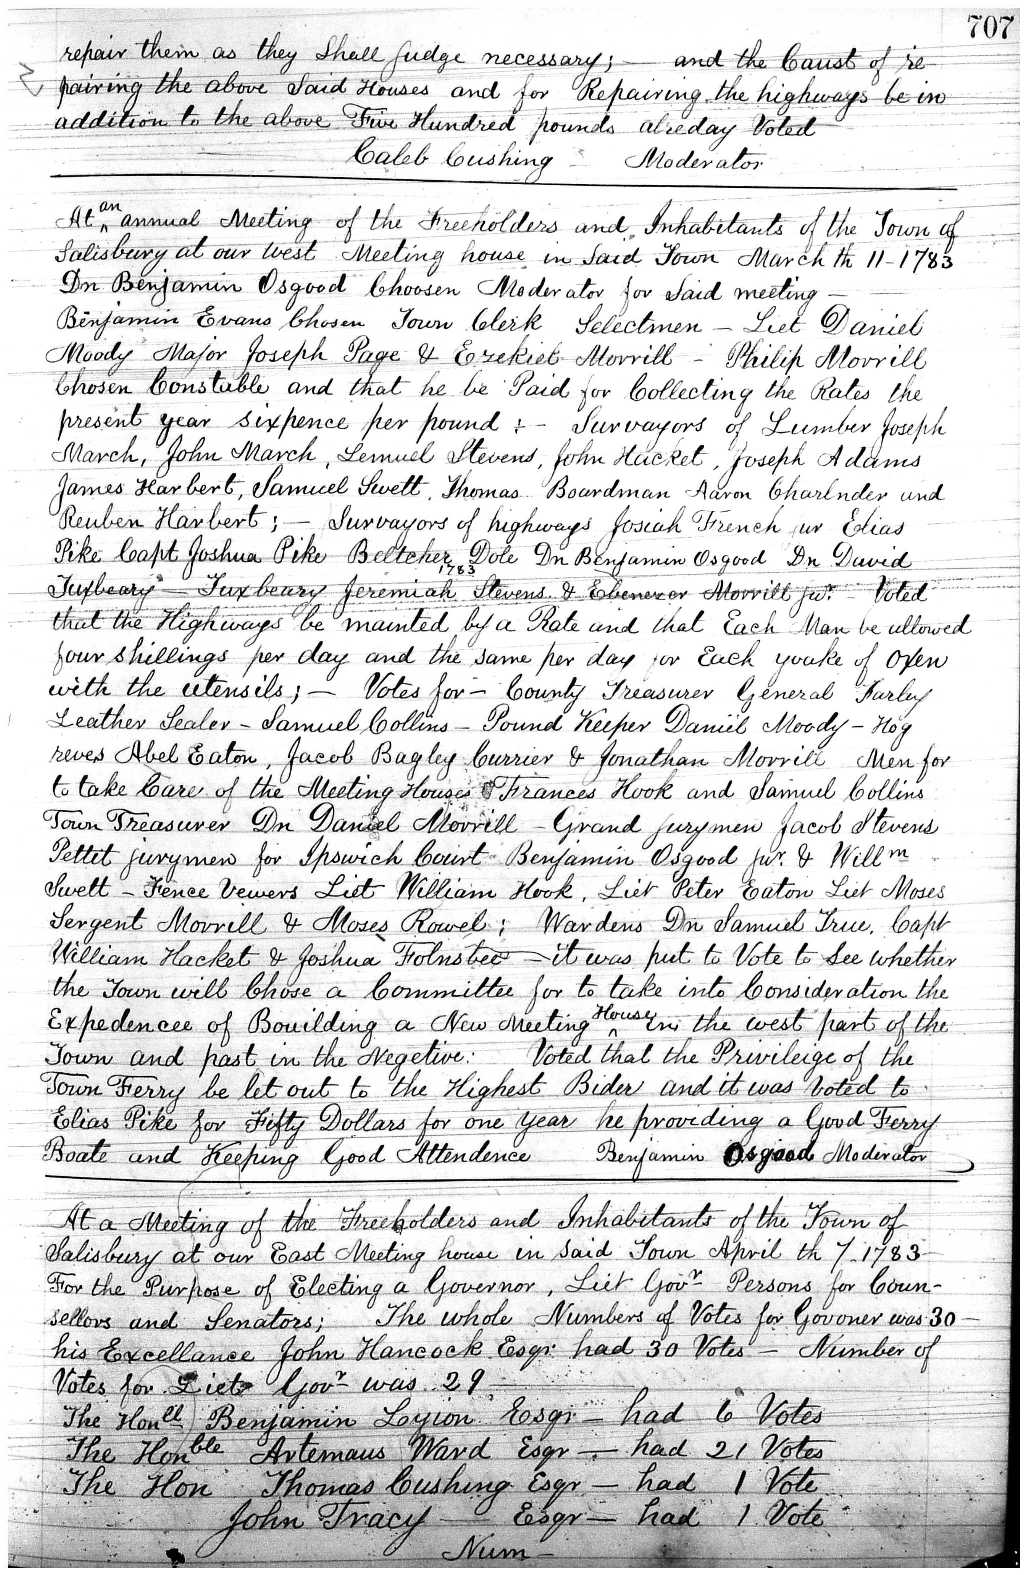 707
repair them as they Shall Judge necessary; — and the Caust of re-
pairing the above Said Houses and for Repairing the highways be in
addition to the above Five Hundred pounds alreday Voted
Caleb Cushing Moderator
At an annual Meeting of the Freeholders and Inhabitants of the Town of
Salisbury at our West Meeting house in Said Town March th 11 - 1783
Dn Benjamin Osgood Choosen Moderator for Said meeting —
Benjamin Evans Chosen Town Clerk Selectmen — Liet Daniel
Moody Major Joseph Page & Ezekiel Morrill - Philip Morrill
Chosen Constable and that he be Paid for Collecting the Rates the
present year sixpence per pound : - Survayors of Lumber Joseph
March, John March, Lemuel Stevens, John Hacket, Joseph Adams
James Harbert, Samuel Swett, Thomas Boardman Aaron and
Reuben Harbert; — Survayors of highways Josiah French jur Elias
Pike Capt Joshua Pike Beltcher Dole Dn Benjamin Osgood Dn David
1783
Tuxbeary — Tuxbeary Jeremiah Stevens & Ebenezer Morrill jur. Voted
that the Highways be mainted by a Rate and that Each Man be allowed
four shillings per day and the same per day for Each yoake of Oxen
with the utensils; — Votes for - County Treasurer General Farley
Leather Sealer - Samuel Collins - Pound Keeper Daniel Moody - Hog
reves Abel Eaton, Jacob Bagley Currier & Jonathan Morrill Men for
to take Care of the Meeting Houses Frances Hook and Samuel Collins
Town Treasurer Dn Daniel Morrill - Grand Jurymen Jacob Stevens
Pettet jurymen for Ipswich Court Benjamin Osgood jur. & Willm
Swett - Fence Vewers Liet William Hook, Liet Peter Eaton Liet Moses
Sergent Morrill & Moses Rowel; Wardens Dn Samuel True, Capt
William Hacket & Joshua Folnsbee — it was put to Vote to See whether
the Town will Chose a Committee for to take into Consideration the
Expedencee of Bouilding a New Meeting House in the west part of the
Town and past in the Negetive: Voted that the Privileige of the
Town Ferry be let out to the Highest Bider and it was Voted to
Elias Pike for Fifty Dollars for one year he providing a Good Ferry
Boate and Keeping Good Attendence Benjamin Osgood Moderator
At a Meeting of the Freeholders and Inhabitants of the Town of
Salisbury at our East Meeting house in Said Town April th 7. 1783
For the Purpose of Electing a Governor, Liet Govr Persons for Coun-
sellors and Senators; The whole Numbers of Votes for Govoner was 30 -
his Excellance John Hancock Esqr. had 30 Votes - Number of
Votes for Liet Govr was 29
The Honll Benjamin Esqr - had 6 Votes
The Honble Artemaus Ward Esqr - had 21 Votes
The Hon Thomas Cushing Esqr - had 1 Vote
John Tracy — Esqr - had 1 Vote
Num -